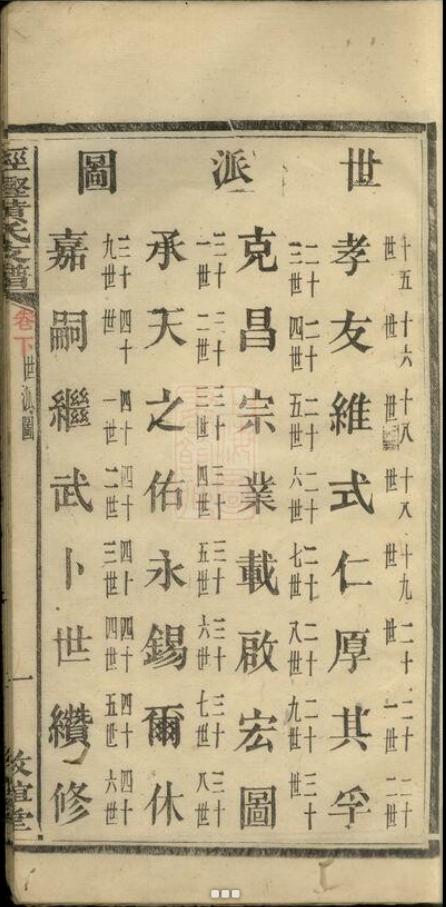 世派圖
十五世 十六世 十八世 十八世 十九世 二十世 二十一世 二十二世
孝友維式仁厚其孚
二十三世 二十四世 二十五世 二十六世 二十七世 二十八世 二十九世 三十世
克昌宗業載啟宏圖
三十一世 三十二世 三十三世 三十四世 三十五世 三十六世 三十七世 三十八世
承天之佑永錫爾休
三十九世 四十世 四十一世 四十二世 四十三世 四十四世 四十五世 四十六世
嘉嗣繼武卜世纘修
黃氏支譜 卷下 世派圖 一 堂